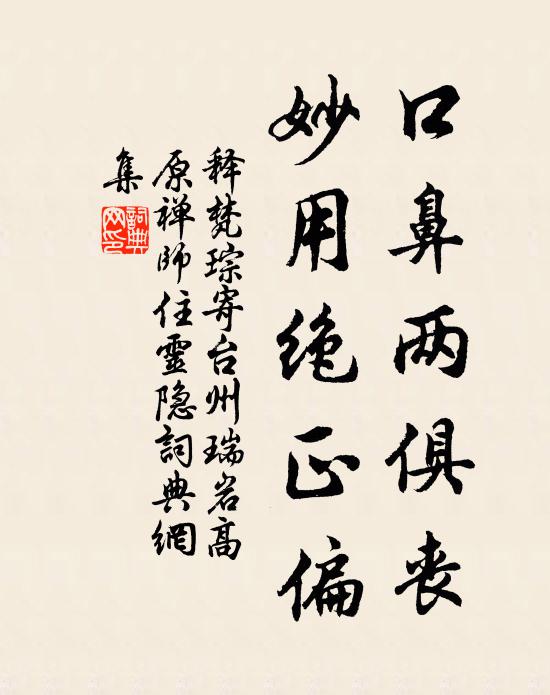 口鼻两俱丧
妙用绝正偏
释梵琮寄台州瑞岩高
原禅师住靈隐詞典網
集
詞典網印